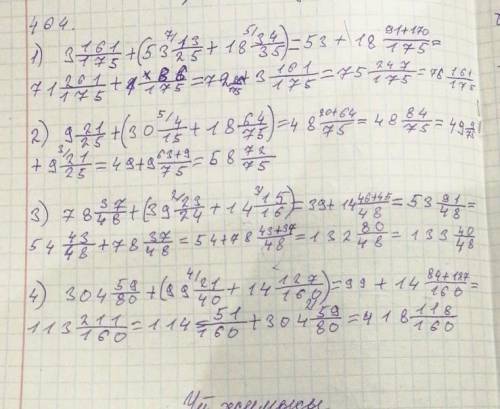 464.
1) 3 161/175 + (53 ⁷⁄13/25 + 18 ⁵⁄34/35) = 53 + 18 91+170/175 =
71 261/175 + 86/175 = 72 + 3 161/175 = 75 247/175 = 76 161/175
2) 9 21/25 + (30 ⁵⁄4/15 + 18 64/75) = 48 20+64/75 = 48 84/75 = 49 9/75
+ 9 ³⁄21/25 = 49+9 63+9/75 = 58 72/75
3) 78 37/48 + (39 ²⁄23/24 + 14 ³⁄15/16) = 39+14 46+45/48 = 53 91/48 =
54 43/48 + 78 37/48 = 54+78 43+37/48 = 132 80/48 = 133 40/48
4) 304 59/80 + (99 ⁴⁄21/40 + 14 127/160) = 99 + 14 84+127/160 =
113 211/160 = 114 = 51/160 + 304 ²⁄59/80 = 418 118/160